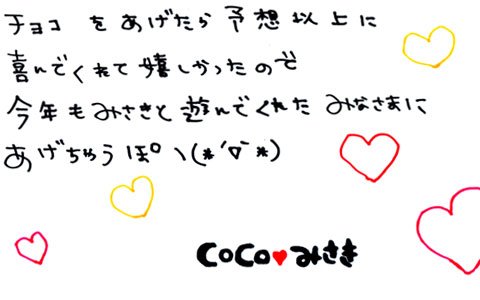 チョコ をあげたら 予想以上に
喜んでくれて嬉しかったので
今年もみさきと遊んでくれた みなさまに
あげちゃうぽ°ヽ(*´∇｀*)
CoCo♥みさき